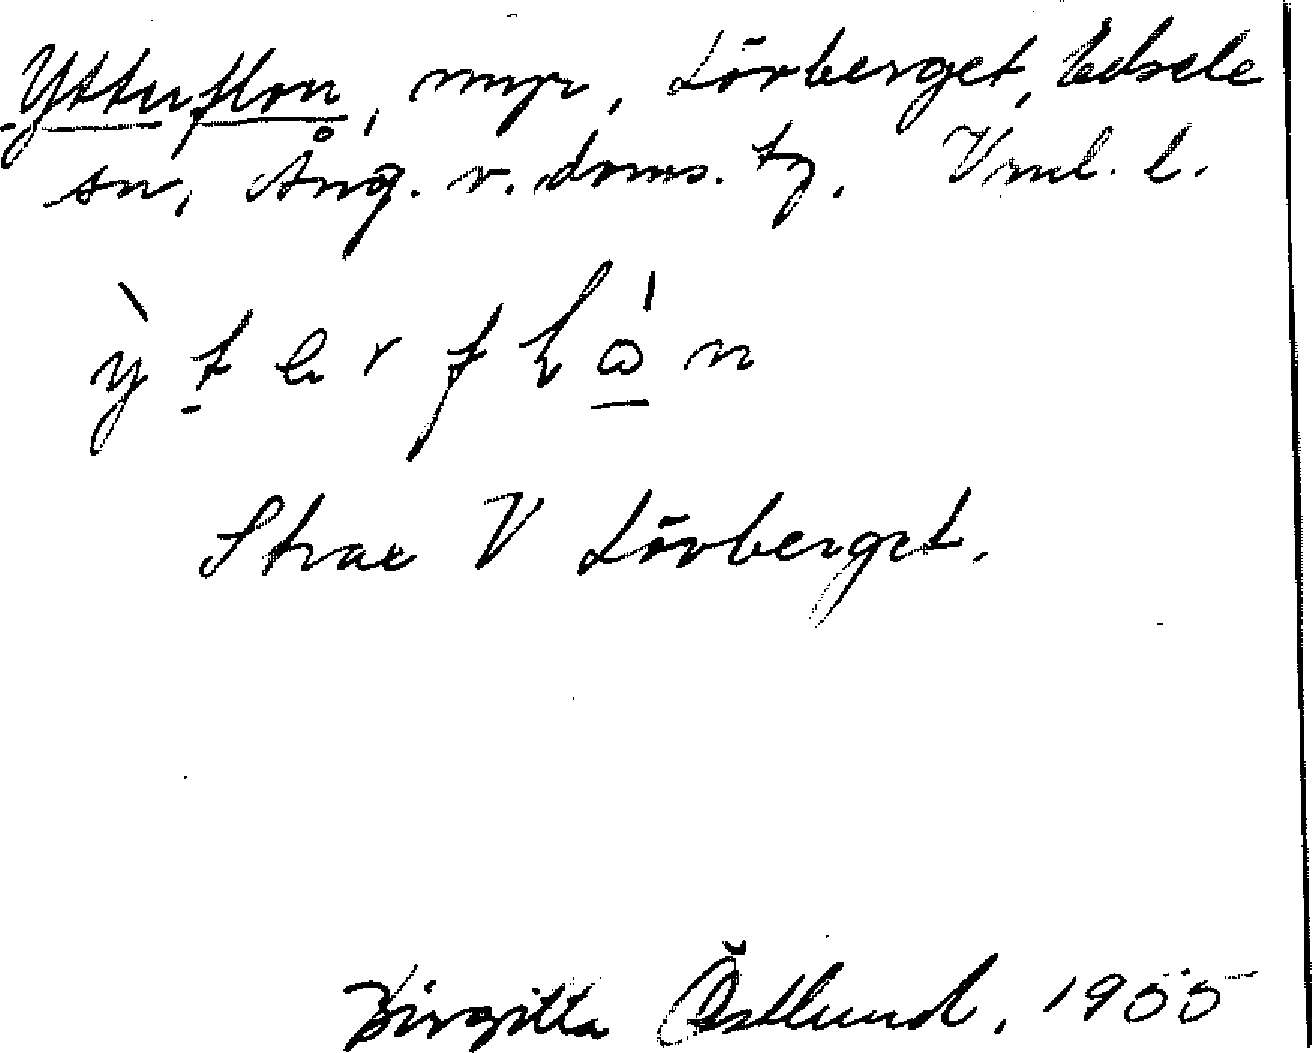 Ytterflon, myr, Lövberget, Edsele
sn, Ång. v. doms. tg. Vml. l.
Strax V Lövberget.
Birgitta Östlund, 1955